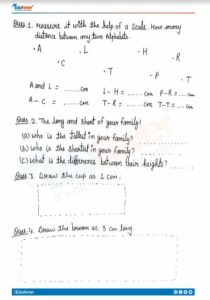 Edulever
Ques 1. Measure it with the help of a Scale. How many
distance between any two Alphabets.
• A • L • H
• C • R
• T • P • T
A and L = ...... cm L - H = ...... cm P - R = ... cm
A - C = ...... cm T - R = ...... cm T - T = ... cm
Ques 2. The long and short of your family!
(a) who is the tallest in your family? ........
(b) who is the shortest in your family? ........
(c) what is the difference between their heights? ........
Ques 3. Draw the cup as 1 cm.
Ques 4. Draw the broom as 3 cm long.
/Edulever